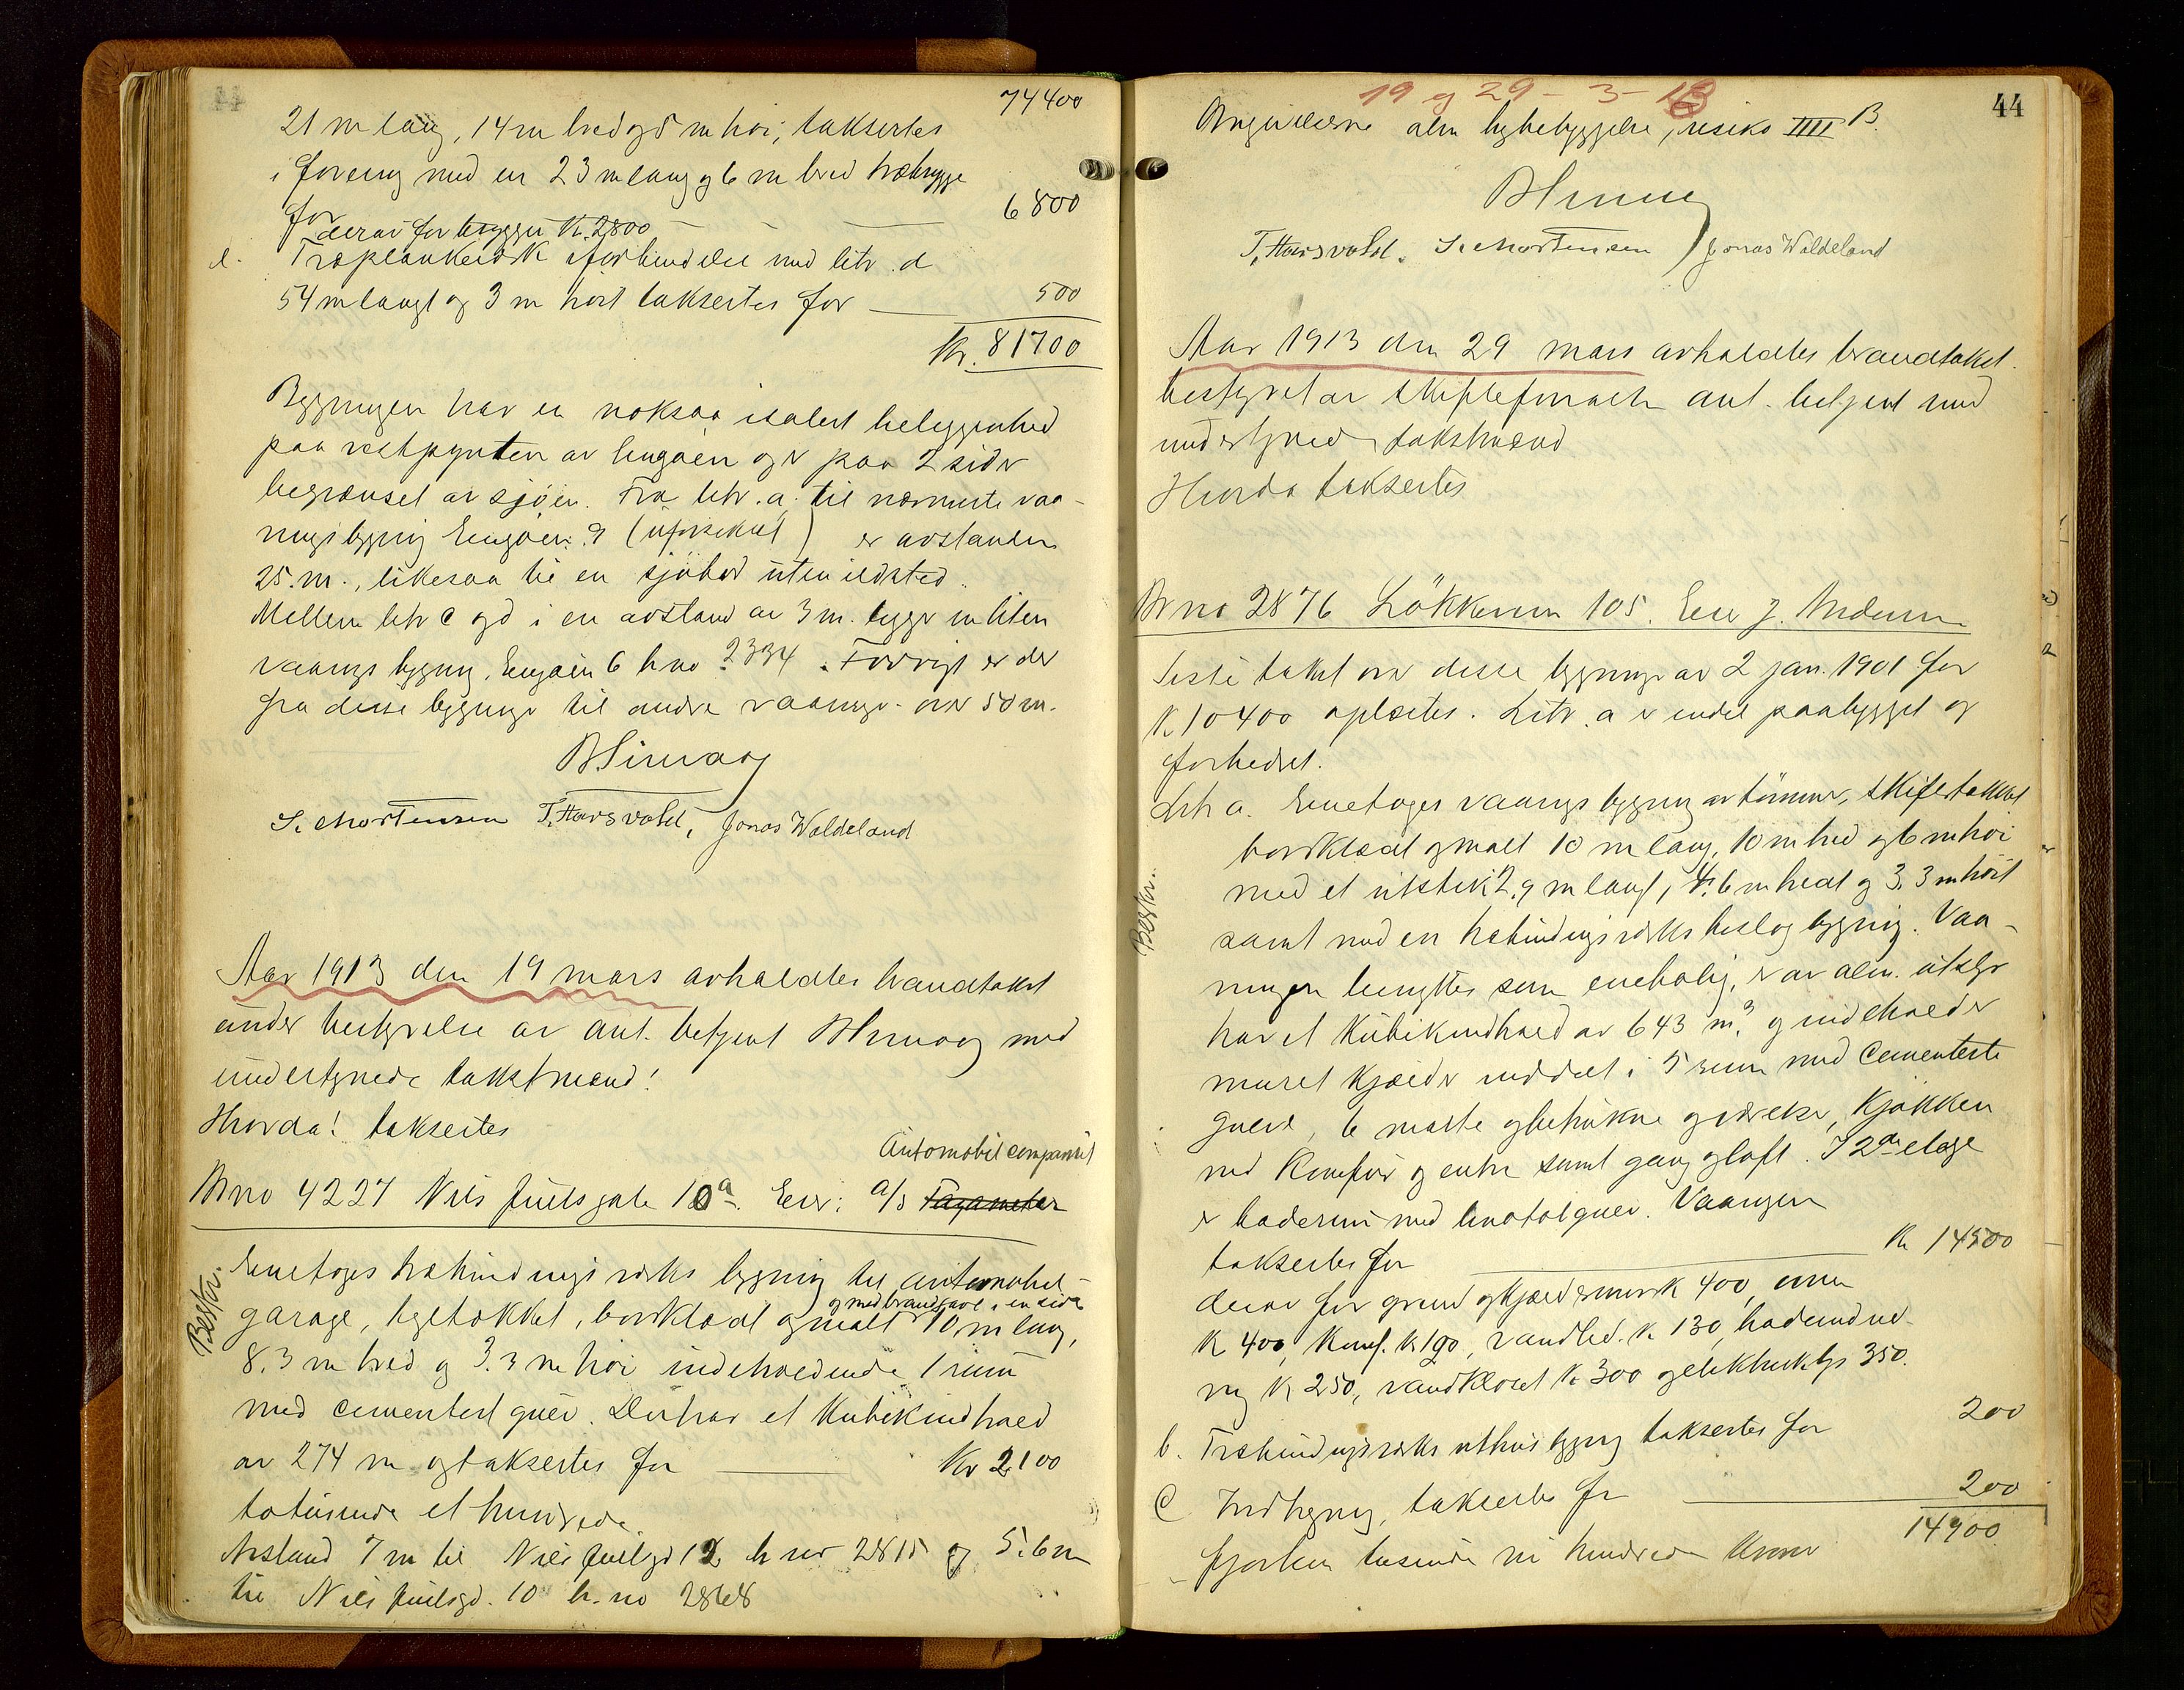 74400
21 m lang, 14 m bred og 5 m høi, taksertes
i forening med en 23 m lang og 6 m bred træbrygge
for 6800
derav for bryggen Kr. 2800
e. Træplankeværk i forbindelse med litr. d
54 m langt og 3 m høit taksertes for 500
Kr. 81700
Bygningen har en noksaa isolert beliggenhed
paa vestpynten av Engøen og er paa 2 sider
begrænset av sjøen. Fra litr. a. til nærmeste vaa-
ningsbygning Engøen 9 (uforsikret) er avstanden
25 m., likesaa til en sjøbod uten ildsted.
Mellem litr c og d i en avstand av 3 m. ligger en liten
vaanings bygning, Engøen 6 br no 2334. Forøvrigt er der
fra disse bygninger til andre vaaninger over 50 m.
S. Mortensen T. Harsvold, Jonas Waldeland
Aar 1913 den 19 mars avholdtes brandtakst
under bestyrelse av aut. betjent med
undertegnede takstmænd!
Hvorda! taksertes
Automobilcompaniet
Br no 4227 Niels Juels gate 10a. Eier: A/S Taxameter
Beskr.
Enetages træbindingsværks bygning til automobil-
og med brandgavl i en side
garage, teglstækket, bordklædt og malt 10 m lang,
8.3 m bred og 3.3 m høi indeholdende 1 rum
med cementert gulv. Den har et Kubikindhold
av 274 m og taksertes for Kr 2100
totusende et hundrede
Avstand 7 m til Niels Juelsgd 12 br no 2815 og 5.6 m
til Niels Juelsgd. 10 br. no 2868
19 og 29 - 3 - 13
44
Omgivelserne alm bybebyggelse, risiko IIII B.
T. Harsvold. S. Mortensen Jonas Waldeland
Aar 1913 den 29 mars avholdtes brandtakst
bestyret av skiftefuldm. aut. betjent med
undertegnede takstmænd
Hvorda taksertes
Br no 2876 Løkkeveien 105. Eier J. Andersen
Siste takst over disse bygninger av 2 jan. 1901 for
K 10400 oplæstes. Litr. a er endel paabygget og
forbedret.
Beskr.
Litr a. Enetages vaanings bygning av tømmer, skifertækket
bordklædt og malt 10 m lang, 10 m bred og 6 m høi
med et utstik 2.9 m langt, 4.6 m bredt og 3.3 m høit
samt med en træbindingsværks bislag bygning. Vaa-
ningen benyttes som enebolig, er av alm. utstyr
har et Kubikindhold av 643 m³ og indeholder
muret Kjælder inddelt i 5 rum med cementerte
gulve, 6 malte og betrukne værelser, Kjøkken
med Komfur og entre samt gang og loft. I 2den etage
er baderum med linotolgulv. Vaaningen
taksertes for Kr 14500
derav for grund og kjældermur K 400, ovner
K 400, Komf. K 190, vandled. K 130, badeindred-
ng K 250, vandkloset K 300 og elektrisk lys 350.
b. Træbindingsværks uthus bygning taksertes for 200
C Indhegning, taksertes for 200
14900
fjorten tusinde ni hundrede Kroner